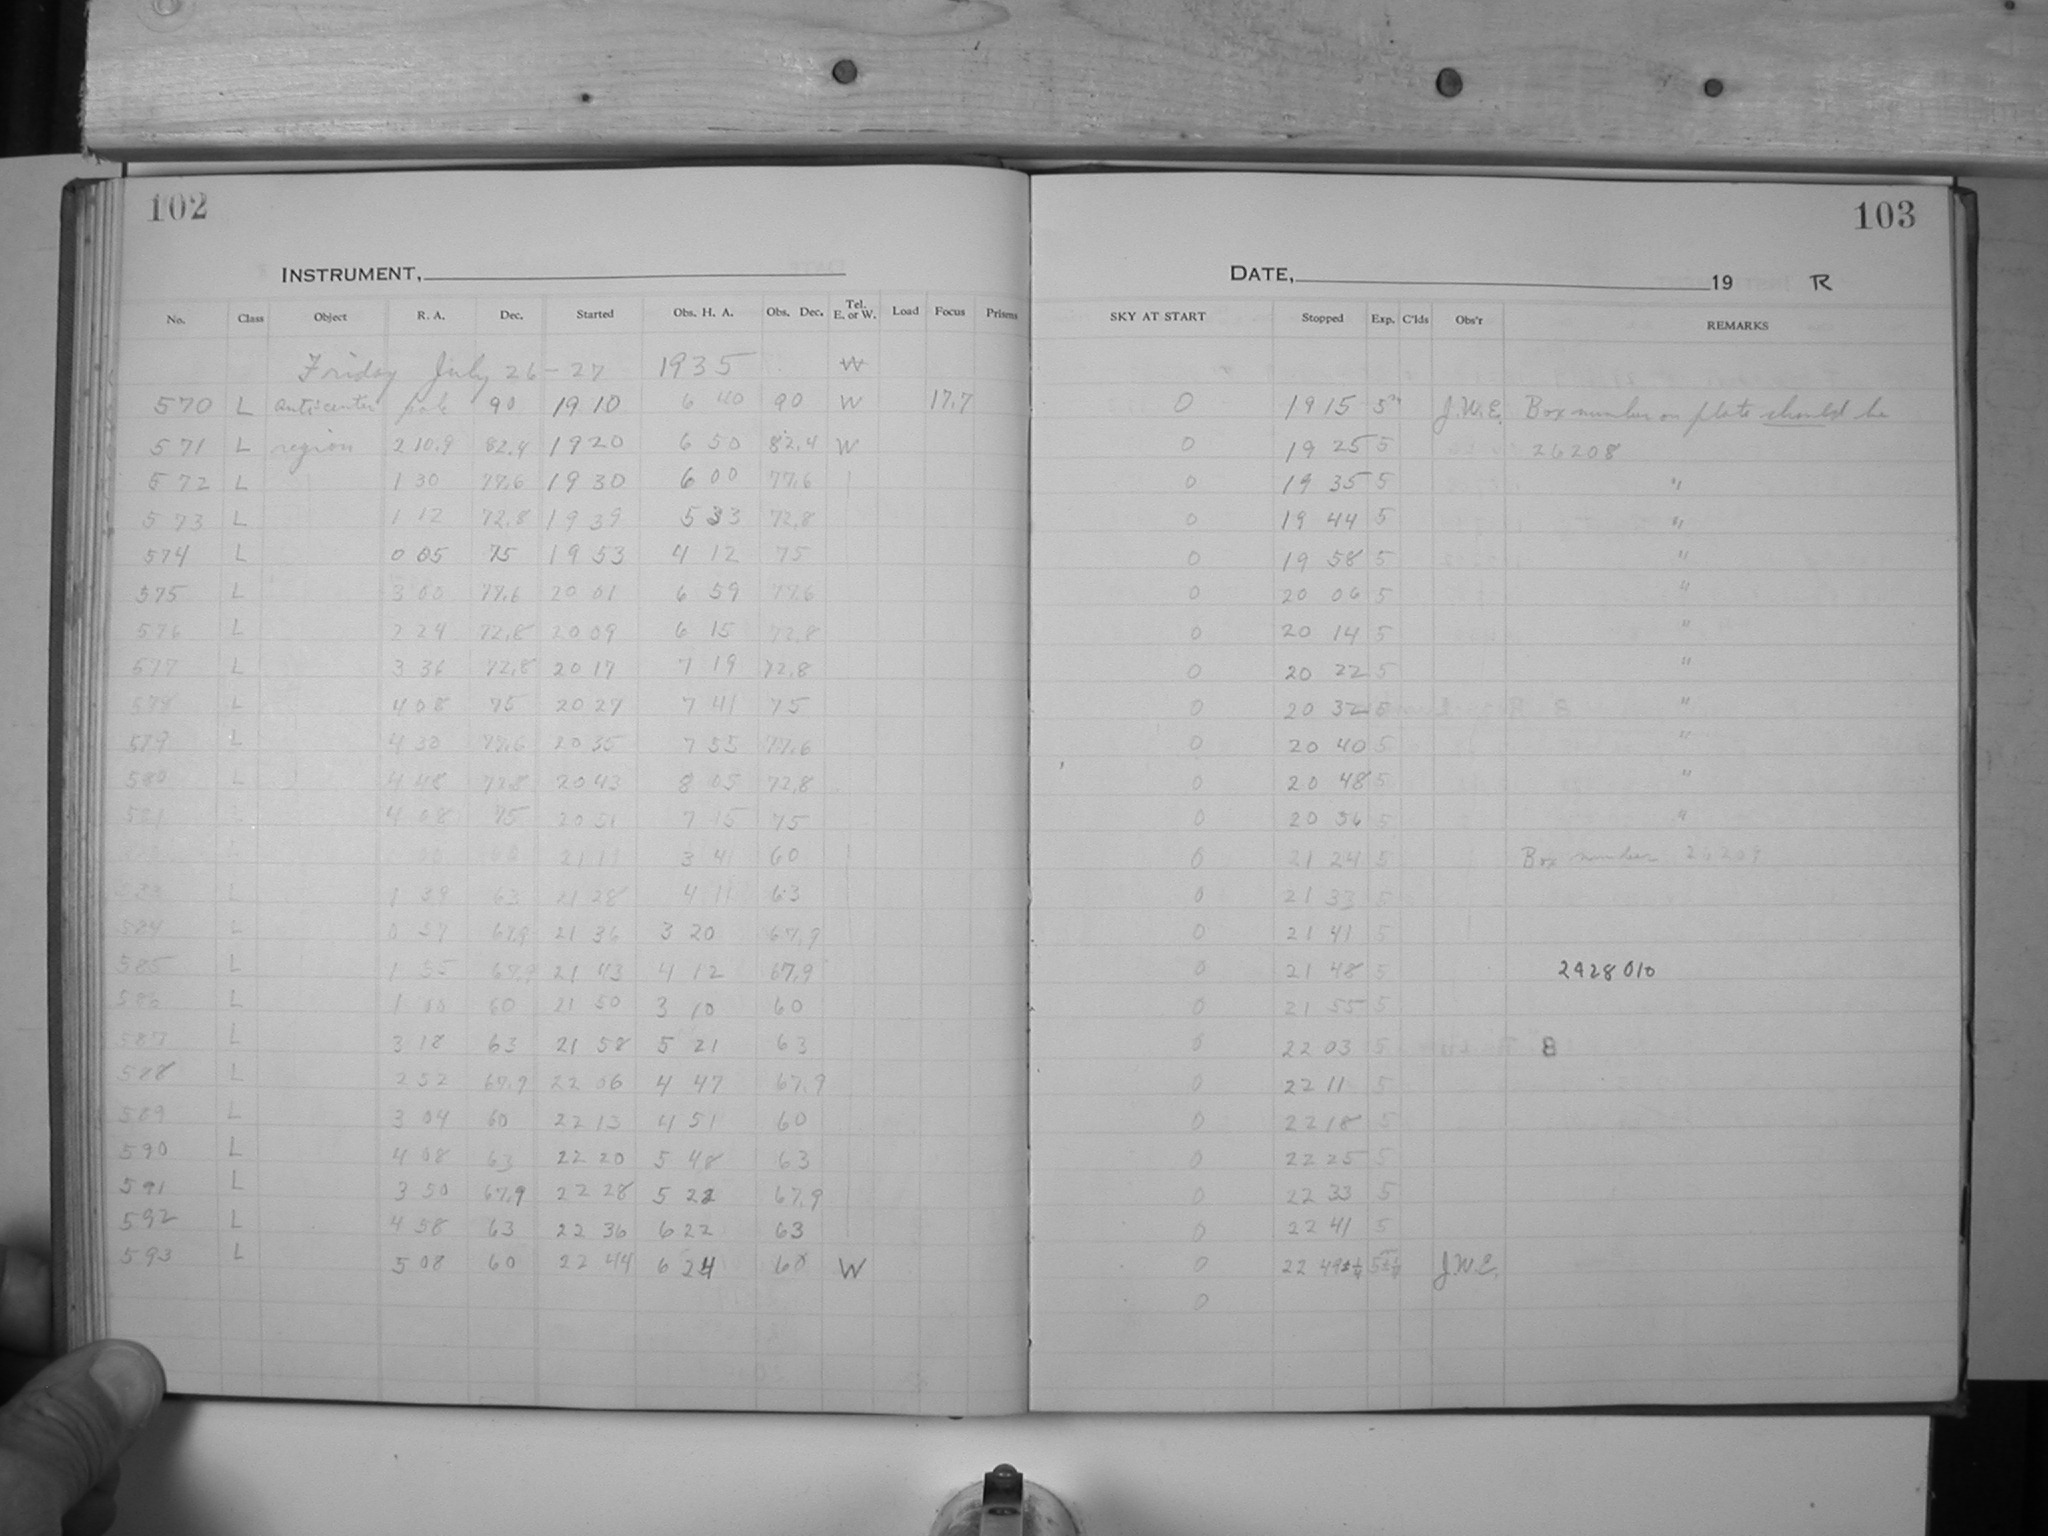 102
INSTRUMENT,
No. Class Object R. A. Dec. Started Obs. H. A. Obs. Dec. Tel. E. or W. Load Focus Prisms
Friday July 26-27 1935 W
570 L Anticenter pole 90 19 10 6 40 90 W 17.7
571 L region 2 10.9 82.4 19 20 6 50 82.4 W
572 L 1 30 77.6 19 30 6 00 77.6
573 L 1 12 72.8 19 39 5 33 72.8
574 L 0 05 75 19 53 4 12 75
575 L 3 00 77.6 20 01 6 59 77.6
576 L 2 24 72.8 20 09 6 15 72.8
577 L 3 36 72.8 20 17 7 19 72.8
578 L 4 08 75 20 27 7 41 75
579 L 4 30 77.6 20 35 7 55 77.6
580 L 4 48 72.8 20 43 8 05 72.8
581 L 4 08 75 20 51 7 15 75
L 60 21 19 3 41 60
583 L 1 39 63 21 28 4 11 63
584 L 0 57 67.9 21 36 3 20 67.9
585 L 1 55 67.9 21 43 4 12 67.9
586 L 1 00 60 21 50 3 10 60
587 L 3 18 63 21 58 5 21 63
588 L 2 52 67.9 22 06 4 47 67.9
589 L 3 04 60 22 13 4 51 60
590 L 4 08 63 22 20 5 48 63
591 L 3 50 67.9 22 28 5 22 67.9
592 L 4 58 63 22 36 6 22 63
593 L 5 08 60 22 44 6 24 60 W
103
DATE, 19 R
SKY AT START Stopped Exp. C'lds Obs'r REMARKS
0 19 15 5m J.W.E. Box number on plate should be
0 19 25 5 26208
0 19 35 5 "
0 19 44 5 "
0 19 58 5 "
0 20 06 5 "
0 20 14 5 "
0 20 22 5 "
0 20 32 5 "
0 20 40 5 "
0 20 48 5 "
0 20 56 5 "
0 21 24 5 Box number 26209
0 21 33 5
0 21 41 5
0 21 48 5 2428010
0 21 55 5
0 22 03 5
0 22 11 5
0 22 18 5
0 22 25 5
0 22 33 5
0 22 41 5
0 22 49±¼ 5±¼ J.W.E.
0